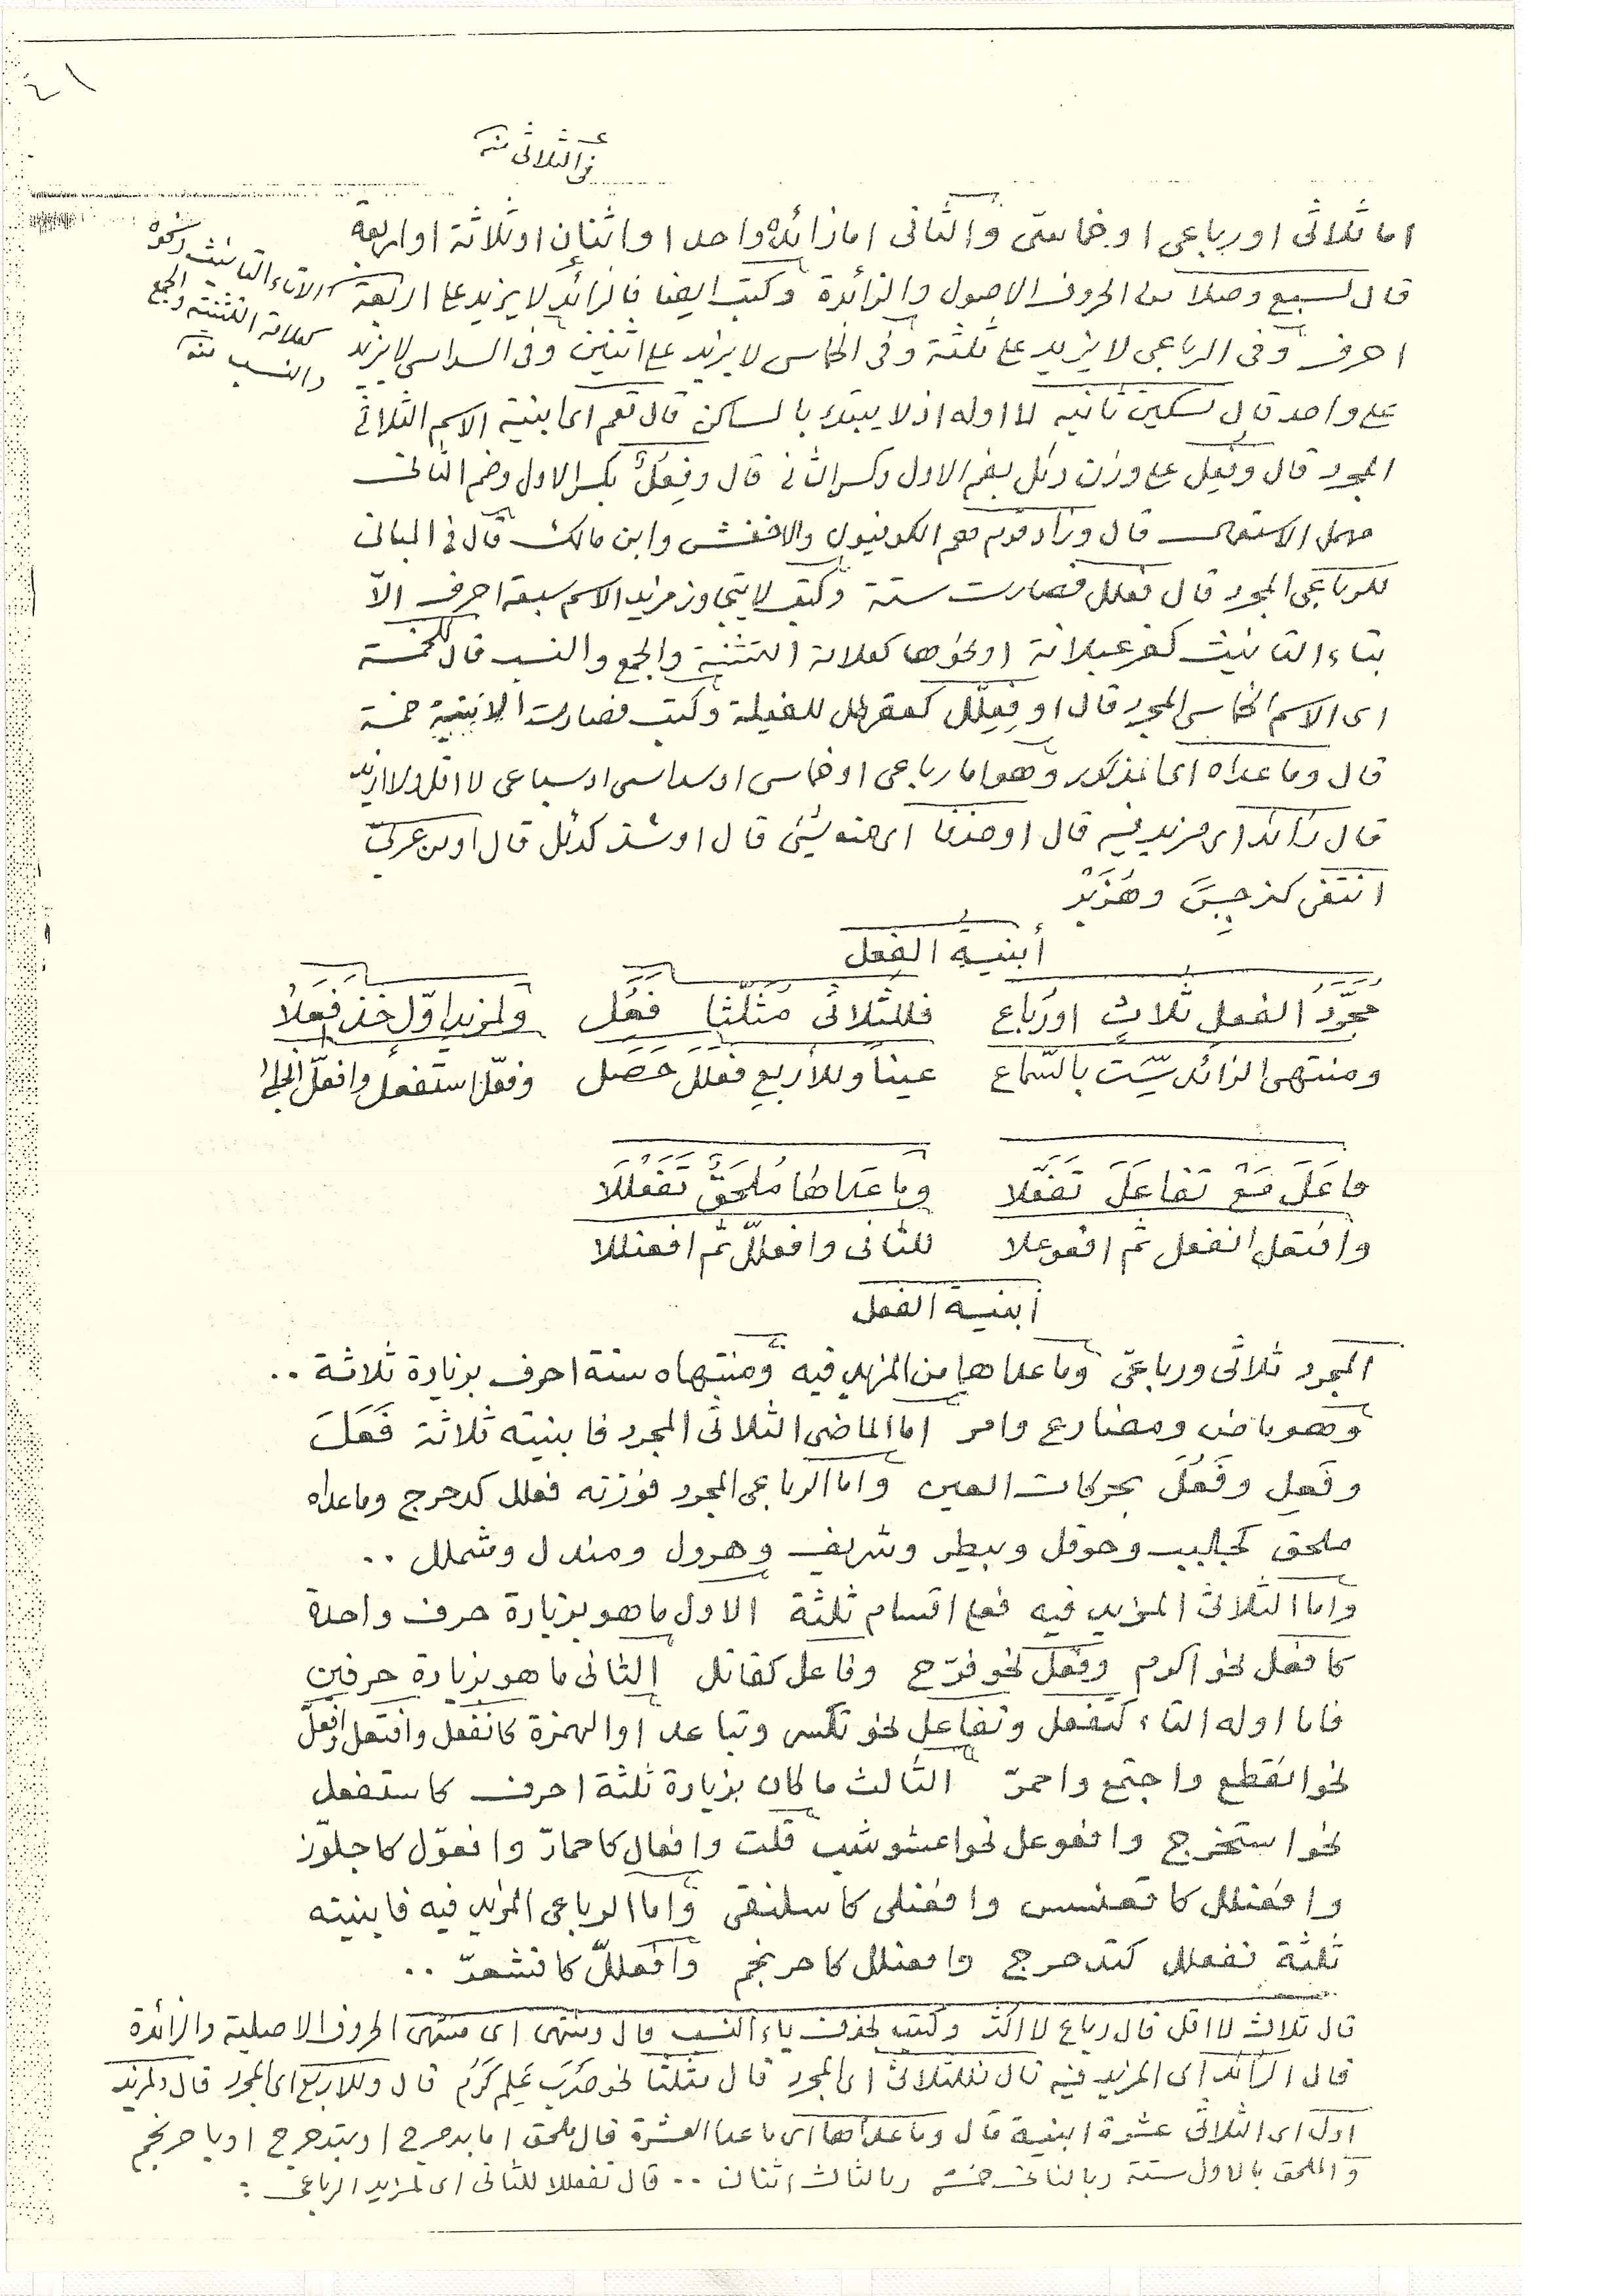 ٤١
فى الثلاثى منه
اما ثلاثى او رباعى او خماسى والثانى اما زائده واحد او اثنان او ثلاثة او اربعة
قال لسبع وصلا من الحروف الاصول والزائدة وكتب ايضا فالزائد لا يزيد على اربعة
الا تاء التانيث ونحوه
كعلامة التثنية والجمع
والنسب منه
احرف وفى الرباعى لا يزيد على ثلثة وفى الخماسى لا يزيد على اثنين وفى السداسى لا يزيد
على واحد قال تسكين ثانيه لا اوله اذ لا يبتدء بالساكن قال تعم اى ابنية الاسم الثلاثى
المجرد قال وفعل على وزن دئل بضم الاول وكسر الثانى قال وفِعُلٌ بكسر الاول وضم الثانى
مهمل الاستعمال قال وزاد قوم هم الكوفيون والاخفش وابن مالك قال فى المبانى
للرباعى المجرد قال فعلل فصارت ستة وكتب لا يتجاوز مزيد الاسم سبعة احرف الّا
بتاء التانيث كقرعبلانة او نحوها كعلامة التثنية والجمع والنسب قال للخمسة
اى الاسم الخماسى المجرد قال او فعلّل كقرطل للفيلة وكتب فصارت الابنية خمسة
قال وما عداه اى المذكور وهو اما رباعى او خماسى او سداسى او سباعى لا اقل ولا ازيد
قال زائد اى مزيد فيه قال او حذفا اى منه شيئ قال او شذ كدئل قال او من عربىّ
انتفى كنرجِسَ وهُزَبْر
أبنية الفعل
مجَّردُ الفعل ثلاثٍ او رُباع فللثلاثى مثلّثا فَعَُِل ولمزيد اوّل خذ فعلا
ومنتهى الزائد ستّت بالسّماع عينا وللأربع فعللَ حَصَل وفعّل استفعل وافعلّ انجلى
فاعَلَ مَعْ تفاعَلَ تفَعَّلا وما عداها مُلحَقٌ تَفَعْلَلا
وافتعل انفعل ثم افعوعلا للثانى وافعللّ ثم افعنللا
أبنية الفعل
المجرد ثلاثى ورباعى وما عداهما من المزيد فيه ومنتهاه ستة احرف بزيادة ثلاثة ..
وهو ماض ومضارع وامر اما الماضى الثلاثى المجرد فابنيته ثلاثة فَعَلَ
وفَعِل وفَعُلَ بحركات العين واما الرباعى المجرد فوزنه فعلل كدحرج وما عداه
ملحق كجلبب وحوقل وبيطر وشريف وهرول ومندل وشملل ..
واما الثلاثى المزيد فيه فعلى اقسام ثلثة الاول ما هو بزيادة حرف واحدة
كافعل نحو اكرم وفعّل نحو فرّح وفاعل كقاتل الثانى ما هو بزيادة حرفين
فاما اوله التاء كتفعل وتفاعل نحو تكسر وتباعد او الهمزة كانفعل وافتعل وافعلّ
نحو انقطع واجتمع واحمرّ الثالث ما كان بزيادة ثلثة احرف كاستفعل
نحو استخرج وافعوعل نحو اعشوشب قلت وافعال كاحمارّ وافعوّل كاجلوّز
وافعنلل كاقعنسس وافعنلى كاسلنقى واما الرباعى المزيد فيه فابنيته
ثلثة تفعلل كتدحرج وافعنلل كاحرنجم وافعللّ كاقشعرّ ..
قال ثلاث لا اقل قال رباع لا اكثر وكتب بحذف ياء النسب قال ومنتهى اى منتهى الحروف الاصلية والزائدة
قال الزائد اى المزيد فيه قال فللثلاثى اى المجرد قال مثلثا نحو ضَرَبَ عَلِم كَرُم قال وللاربع اى المجرد قال ولمزيد
اول اى الثلاثى عشرة ابنية قال وما عداها اى ما عدا العشرة قال ملحق اما بدحرج او بتدحرج او باحرنجم
والملحق بالاول ستة وبالثانى خمسة وبالثالث اثنان .. قال تفعللا للثانى اى لمزيد الرباعى :